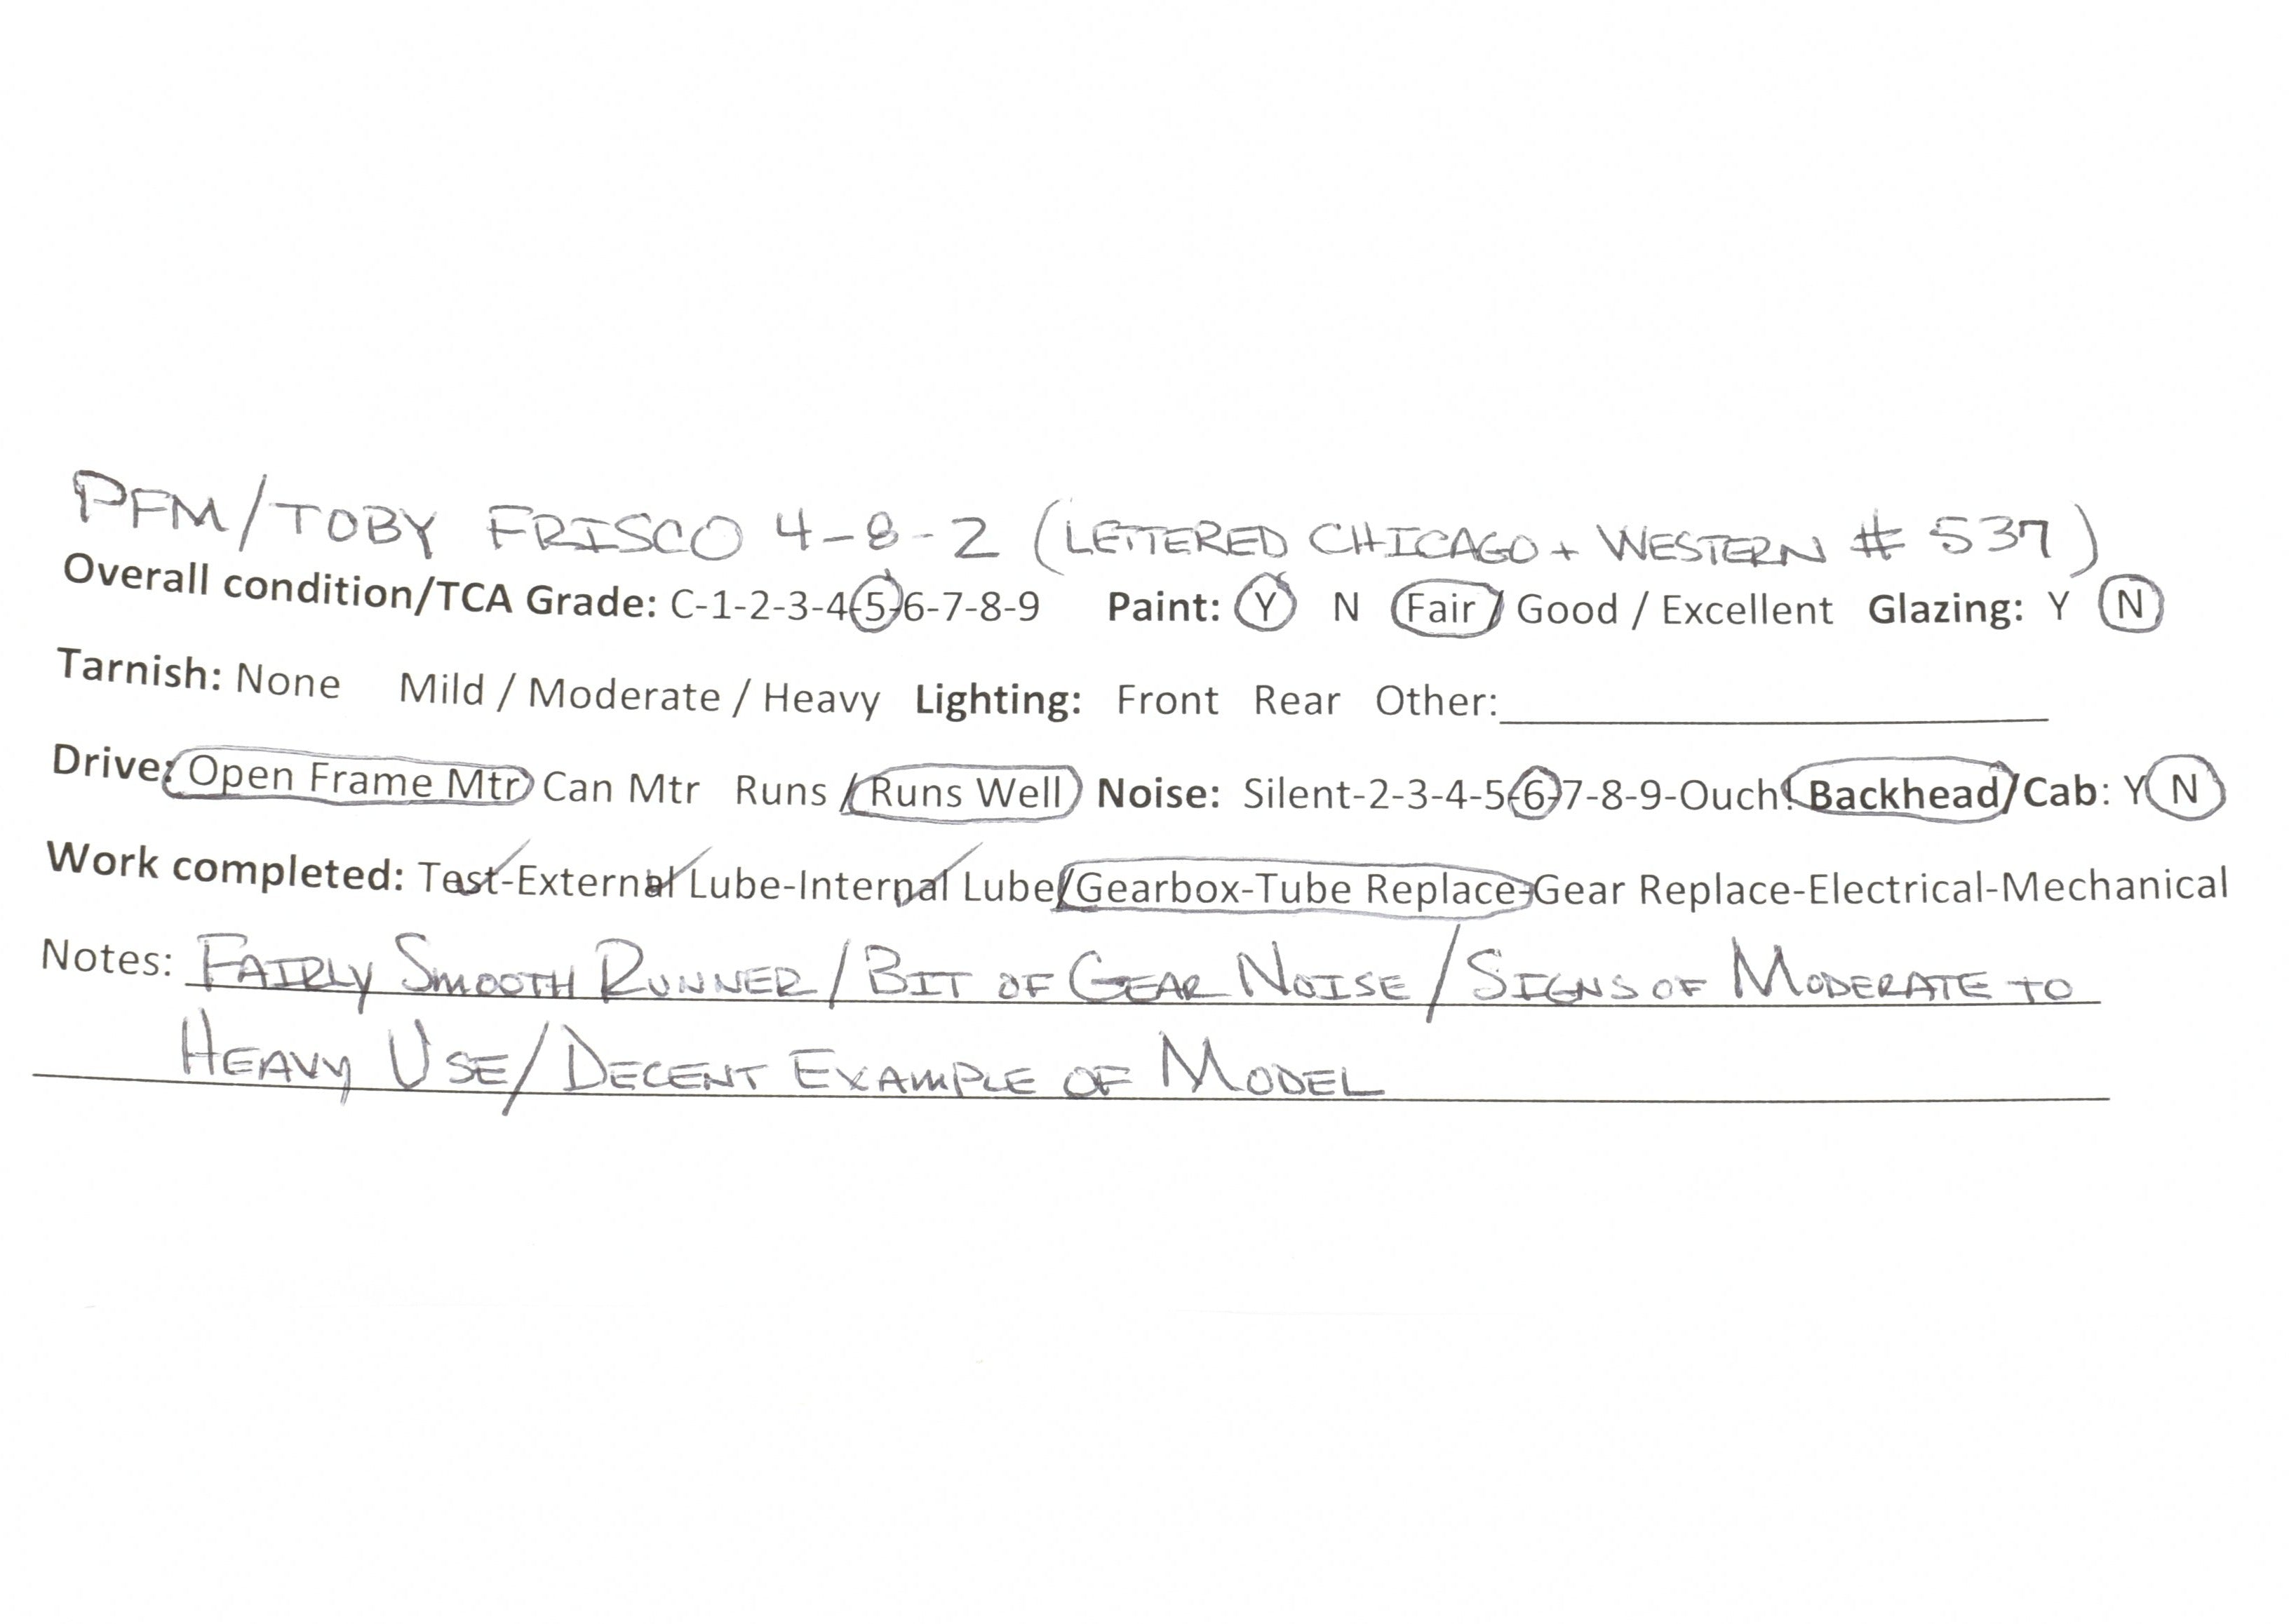 PFM/TOBY FRISCO 4-8-2 (LETTERED CHICAGO + WESTERN # 537)
Overall condition/TCA Grade: C-1-2-3-4-5-6-7-8-9 Paint: Y N Fair / Good / Excellent Glazing: Y N
Tarnish: None Mild / Moderate / Heavy Lighting: Front Rear Other:
Drive: Open Frame Mtr Can Mtr Runs / Runs Well Noise: Silent-2-3-4-5-6-7-8-9-Ouch! Backhead/Cab: Y N
Work completed: Test-External Lube-Internal Lube/Gearbox-Tube Replace-Gear Replace-Electrical-Mechanical
Notes: FAIRLY SMOOTH RUNNER/BIT OF GEAR NOISE/SIGNS OF MODERATE TO
HEAVY USE/DECENT EXAMPLE OF MODEL